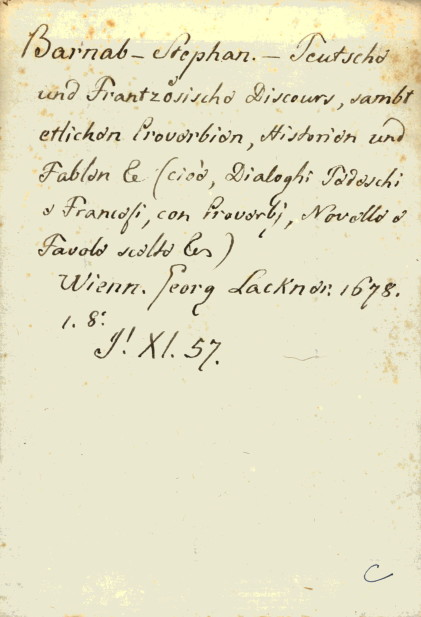 Barnab - Stephan. - Teutsche
und Frantzösische Discours, sambt
etlichen Proverbien, Historien und
Fablen &c (cioè, Dialoghi Tedeschi
e Francesi, con Proverbj, Novelle e
Favole scelte &c)
Wienn. Georg Lackner. 1678.
1. 8.
J! XI. 57.
C